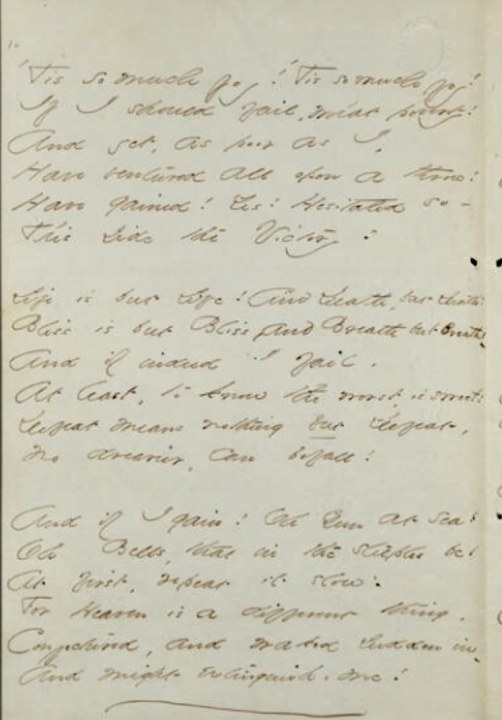 'Tis so much joy! 'Tis so much joy!
If I should fail, what poverty!
And yet, as poor as I,
Have ventured all upon a throw!
Have gained! Yes! Hesitated so -
This side the Victory!
Life is but Life! And Death, but Death!
Bliss is but Bliss, and Breath but Breath!
And if indeed I fail,
At least, to know the worst is sweet!
Defeat means nothing but Defeat,
No drearier, can befall!
And if I gain! Oh Gun at Sea!
Oh Bells, that in the steeples be!
At first, repeat it slow!
For Heaven is a different thing,
Conjectured, and waked sudden in,
And might extinguish me!